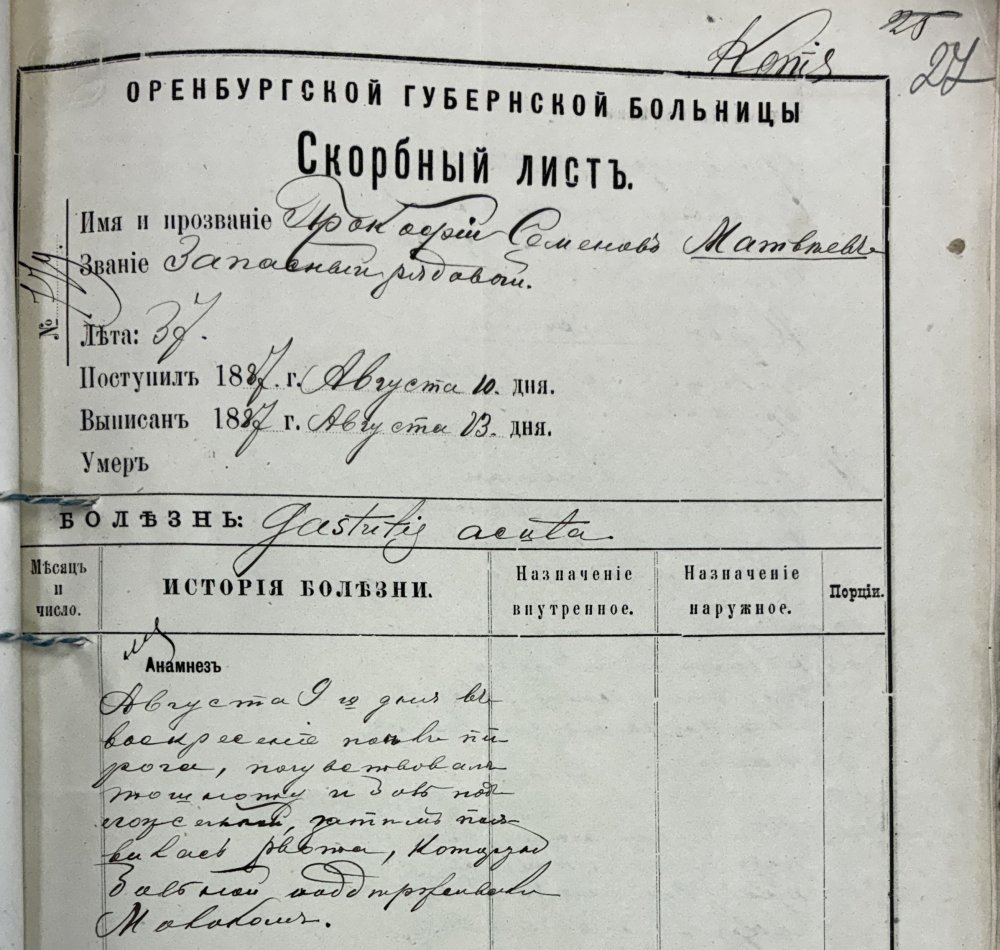 Копія
25
27
ОРЕНБУРГСКОЙ ГУБЕРНСКОЙ БОЛЬНИЦЫ
Скорбный листъ.
Имя и прозваніе Прокофій Семеновъ Матвѣевъ
Званіе Запасный рядовой.
№
Лѣта: 37.
Поступилъ 1887 г. Августа 10. дня.
Выписанъ 1887 г. Августа 13. дня.
Умеръ
БОЛѢЗНЬ: Gastritis acuta.
Мѣсяцъ и число.
ИСТОРІЯ БОЛѢЗНИ.
Назначеніе внутренное.
Назначеніе наружное.
Порціи.
Анамнезъ
Августа 9 го дня въ
воскресеніе поѣвъ пи-
рога, почувствовалъ
тошноту и боль подъ
ложечкой, затѣмъ поя-
вилась рвота, которую
больной поддерживалъ
Молокомъ.